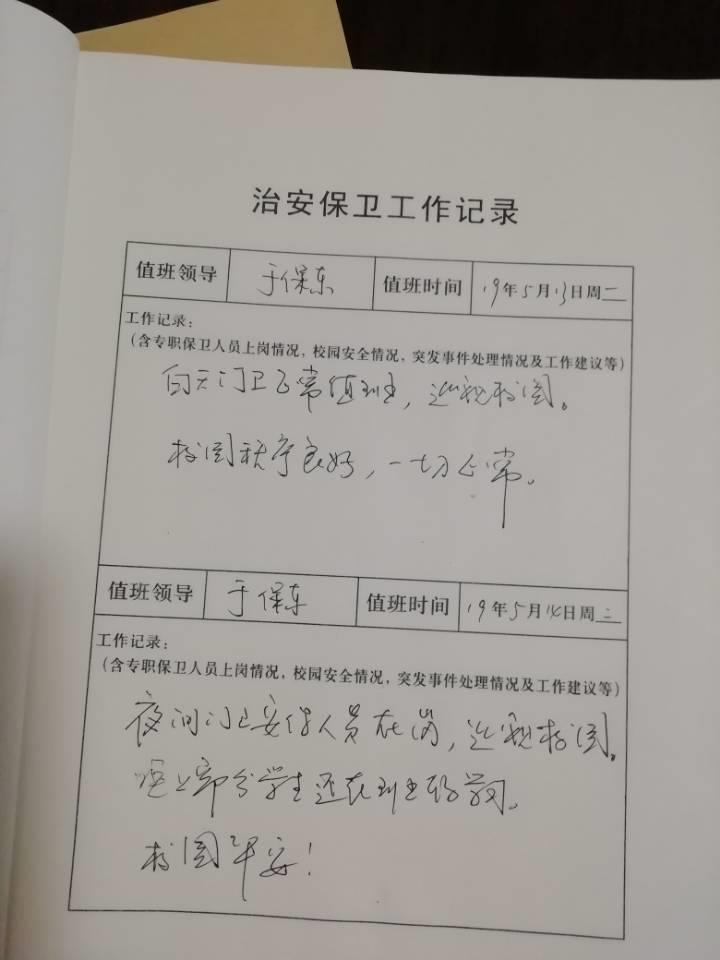 治安保卫工作记录
值班领导 于保东 值班时间 19年5月13日周二
工作记录：
（含专职保卫人员上岗情况，校园安全情况，突发事件处理情况及工作建议等）
白天门卫正常值班，巡视校园。
校园秩序良好，一切正常。
值班领导 于保东 值班时间 19年5月14日周二
工作记录：
（含专职保卫人员上岗情况，校园安全情况，突发事件处理情况及工作建议等）
夜间门卫安保人员在岗，巡视校园。
晚上部分学生还在班上学习。
校园平安！